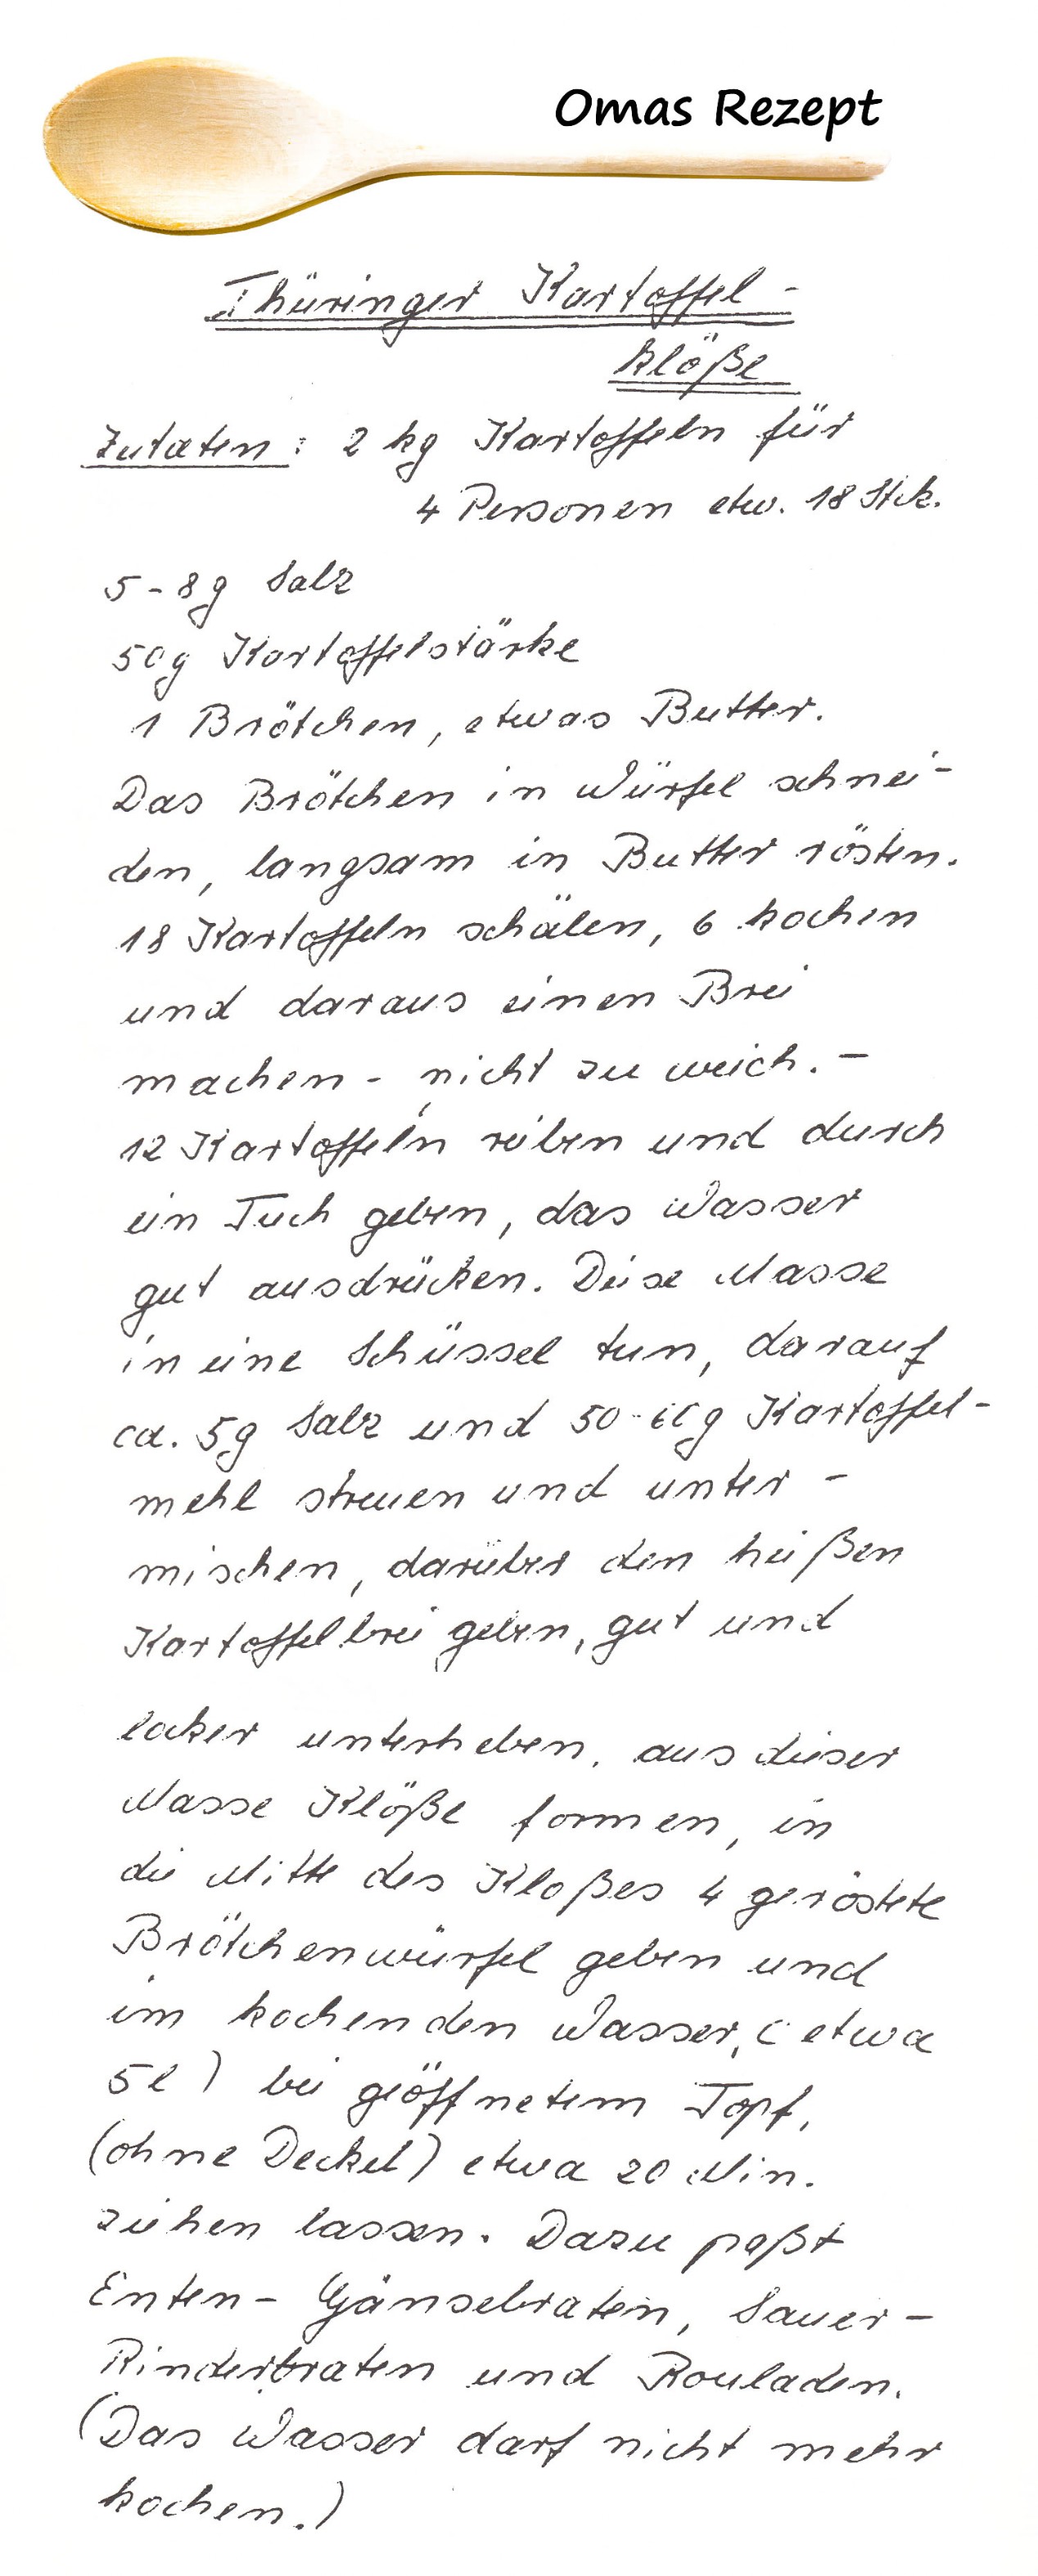 Omas Rezept
Thüringer Kartoffel-
klöße
Zutaten: 2 kg Kartoffeln für
4 Personen etw. 18 Stck.
5-8g Salz
50g Kartoffelstärke
1 Brötchen, etwas Butter.
Das Brötchen in Würfel schnei-
den, langsam in Butter rösten.
18 Kartoffeln schälen, 6 kochen
und daraus einen Brei
machen - nicht zu weich. -
12 Kartoffeln reiben und durch
ein Tuch geben, das Wasser
gut ausdrücken. Diese Masse
in eine Schüssel tun, darauf
ca. 5g Salz und 50-60g Kartoffel-
mehl streuen und unter-
mischen, darüber den heißen
Kartoffelbrei geben, gut und
locker unterheben, aus dieser
Masse Klöße formen, in
die Mitte des Kloßes 4 geröstete
Brötchenwürfel geben und
im kochenden Wasser, (etwa
5l) bei geöffnetem Topf,
(ohne Deckel) etwa 20 Min.
ziehen lassen. Dazu paßt
Enten- Gänsebraten, Sauer-
Rinderbraten und Rouladen.
(Das Wasser darf nicht mehr
kochen.)